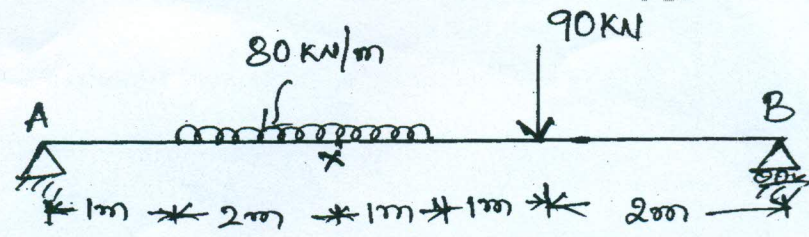 90KN
80KN/m
A
B
x
1m 2m 1m 1m 2m